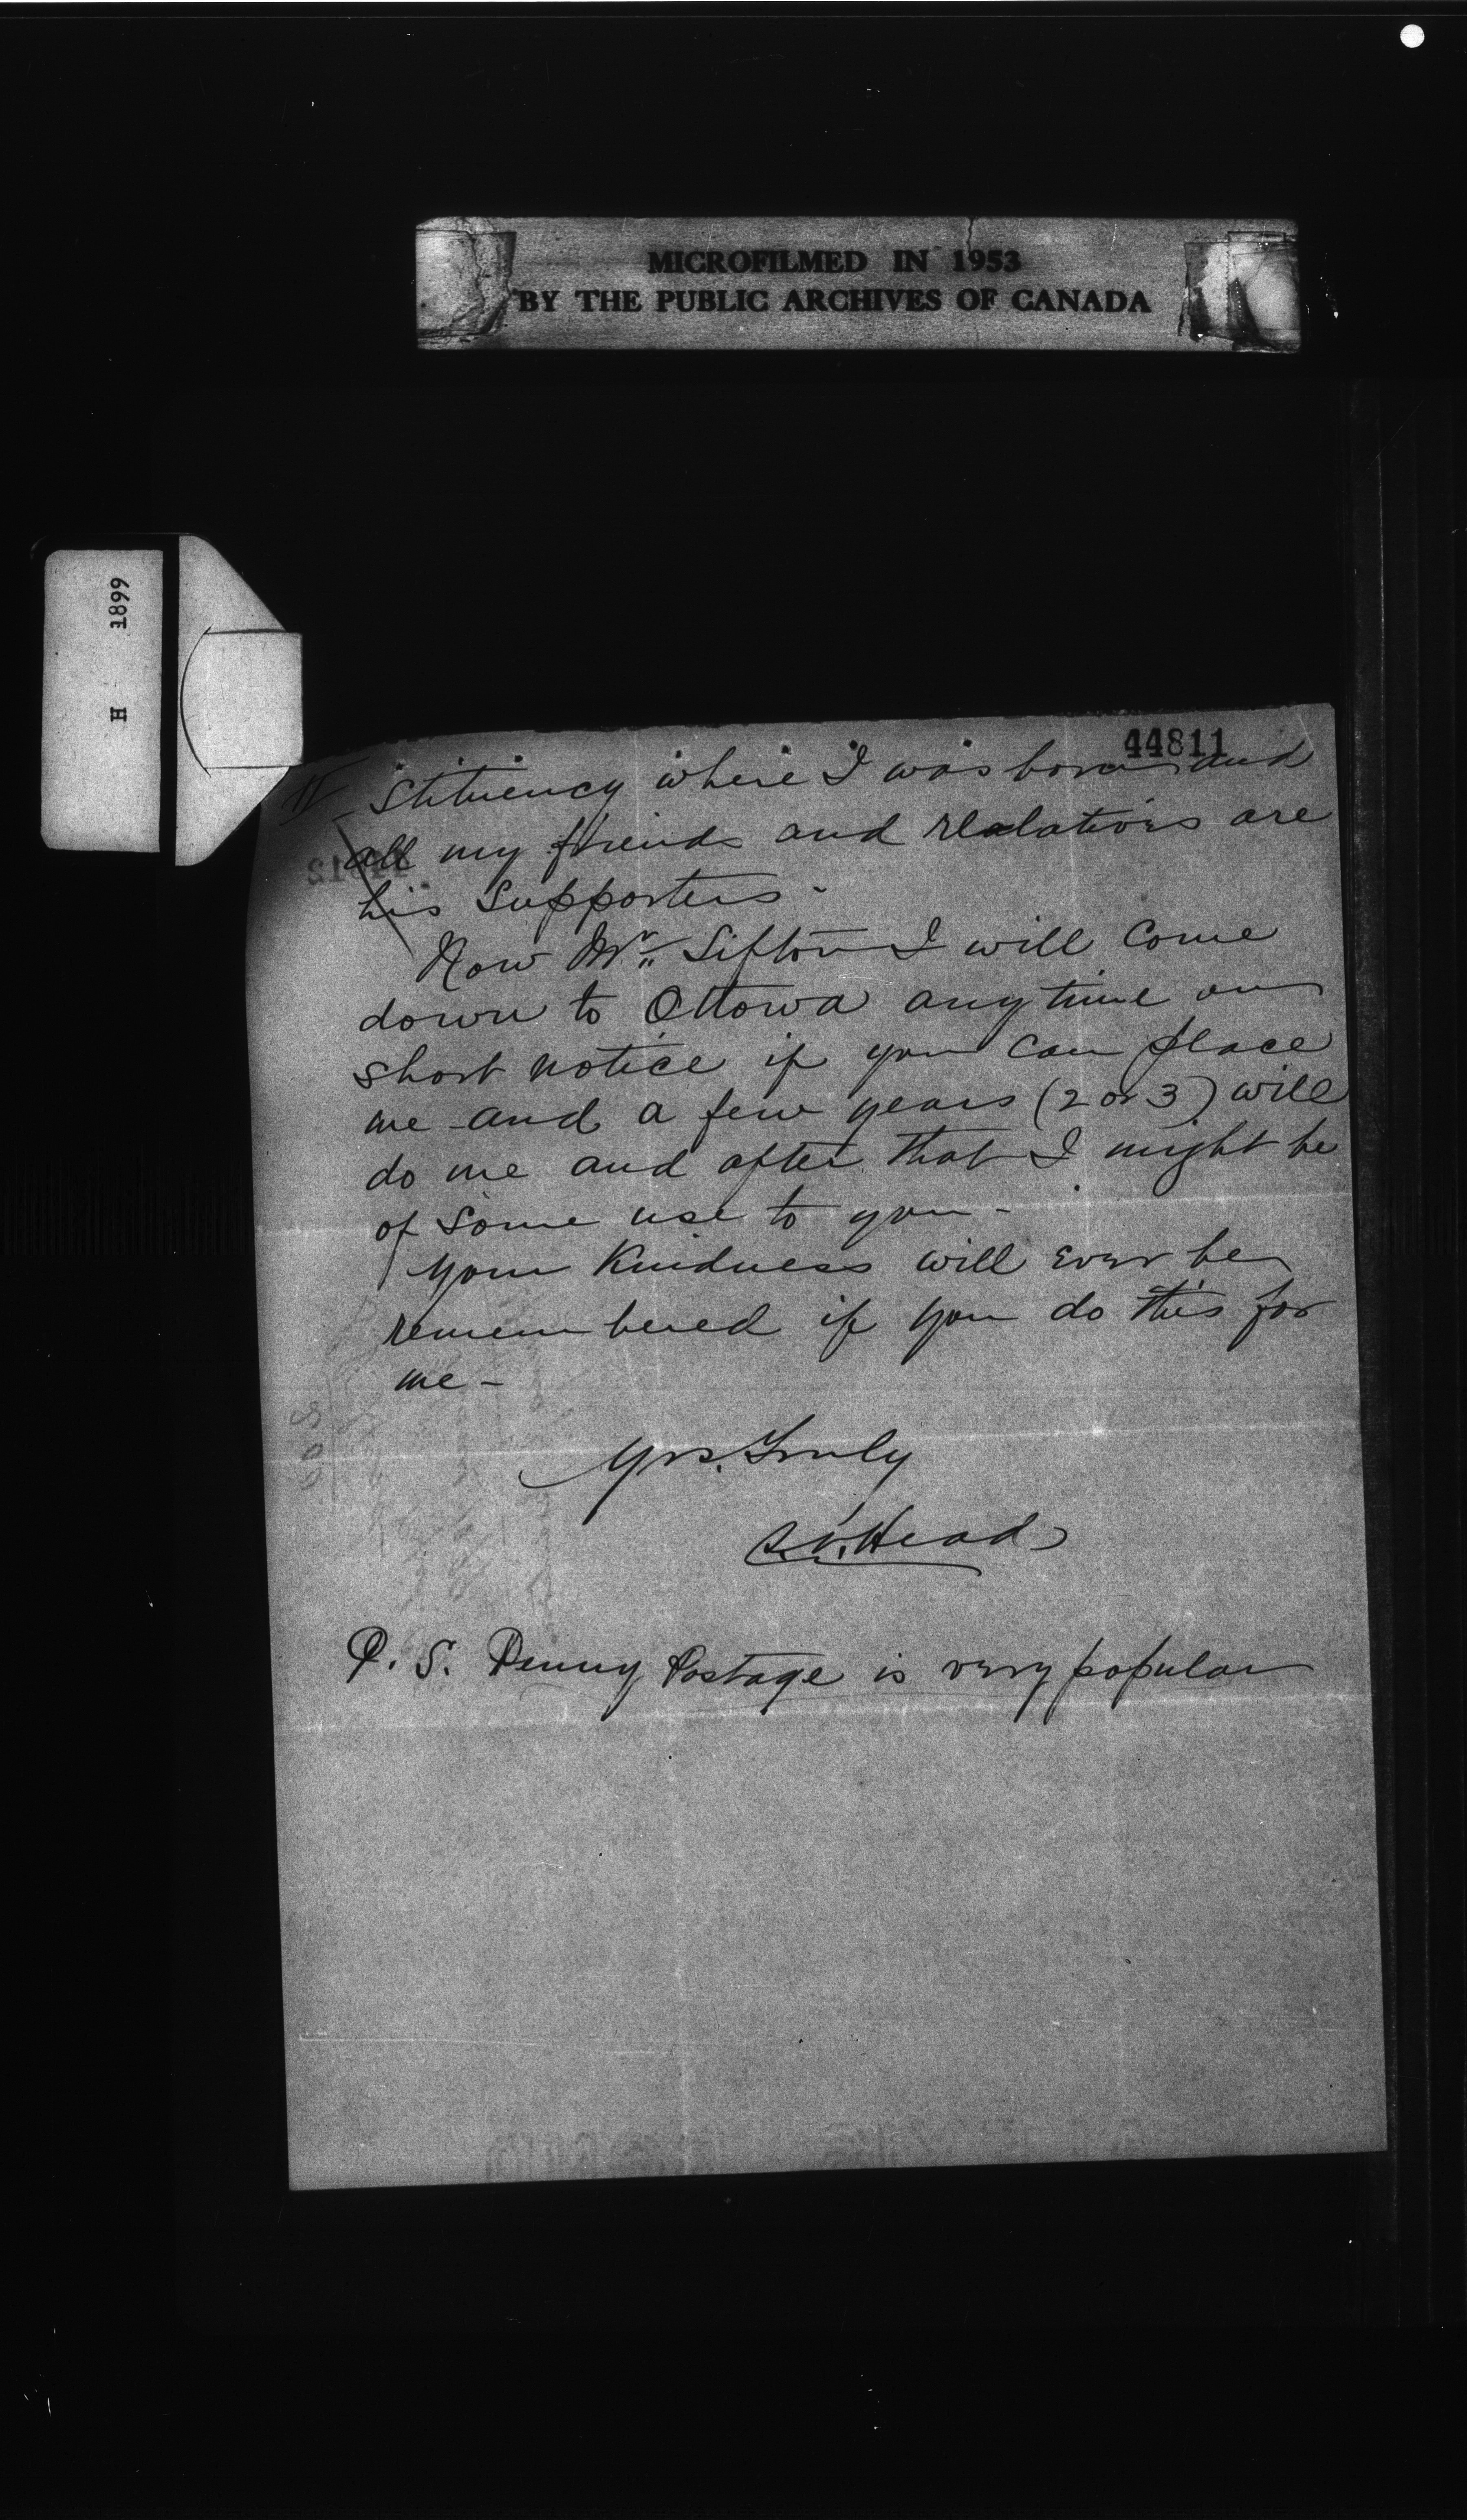 MICROFILMED IN 1953
BY THE PUBLIC ARCHIVES OF CANADA
H 1899
44811
II stituency where I was born and
all my friends and relations are
his supporters -
Now Mr. Sifton I will come
down to Ottowa any time on
short notice if you can place
me and a few years (2 or 3) will
do me and after that I might be
of some use to you -
Your Kindness will ever be
remembered if you do this for
me -
Yrs. Truly
Head
P. S. Penny Postage is very popular